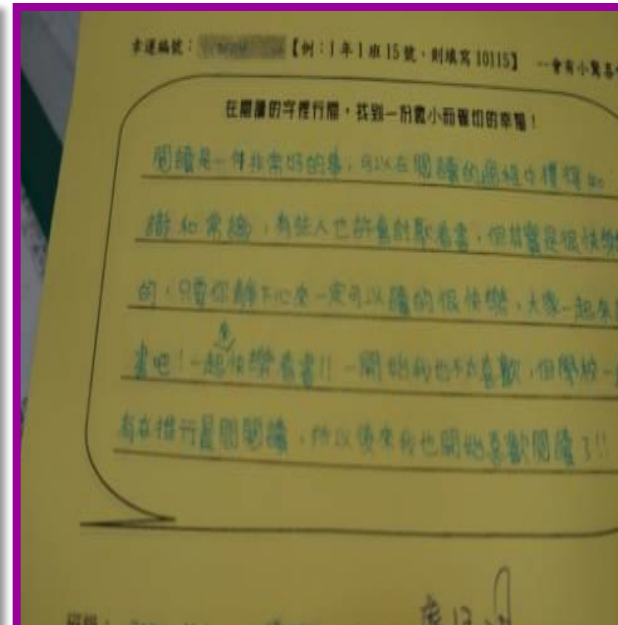 幸運編號： 【例：1年1班15號，則填寫10115】 --會有小驚喜
在閱讀的字裡行間，找到一份微小而確切的幸福！
閱讀是一件非常好的事，可以在閱讀的過程中獲得知
識和常識，有些人也許會討厭看書，但其實是很快樂
的，只要你靜下心來一定可以讀的很快樂，大家一起來
書吧！一起來快樂看書!!一開始我也不太喜歡，但學校一
有在推行晨間閱讀，所以後來我也開始喜歡閱讀了!!